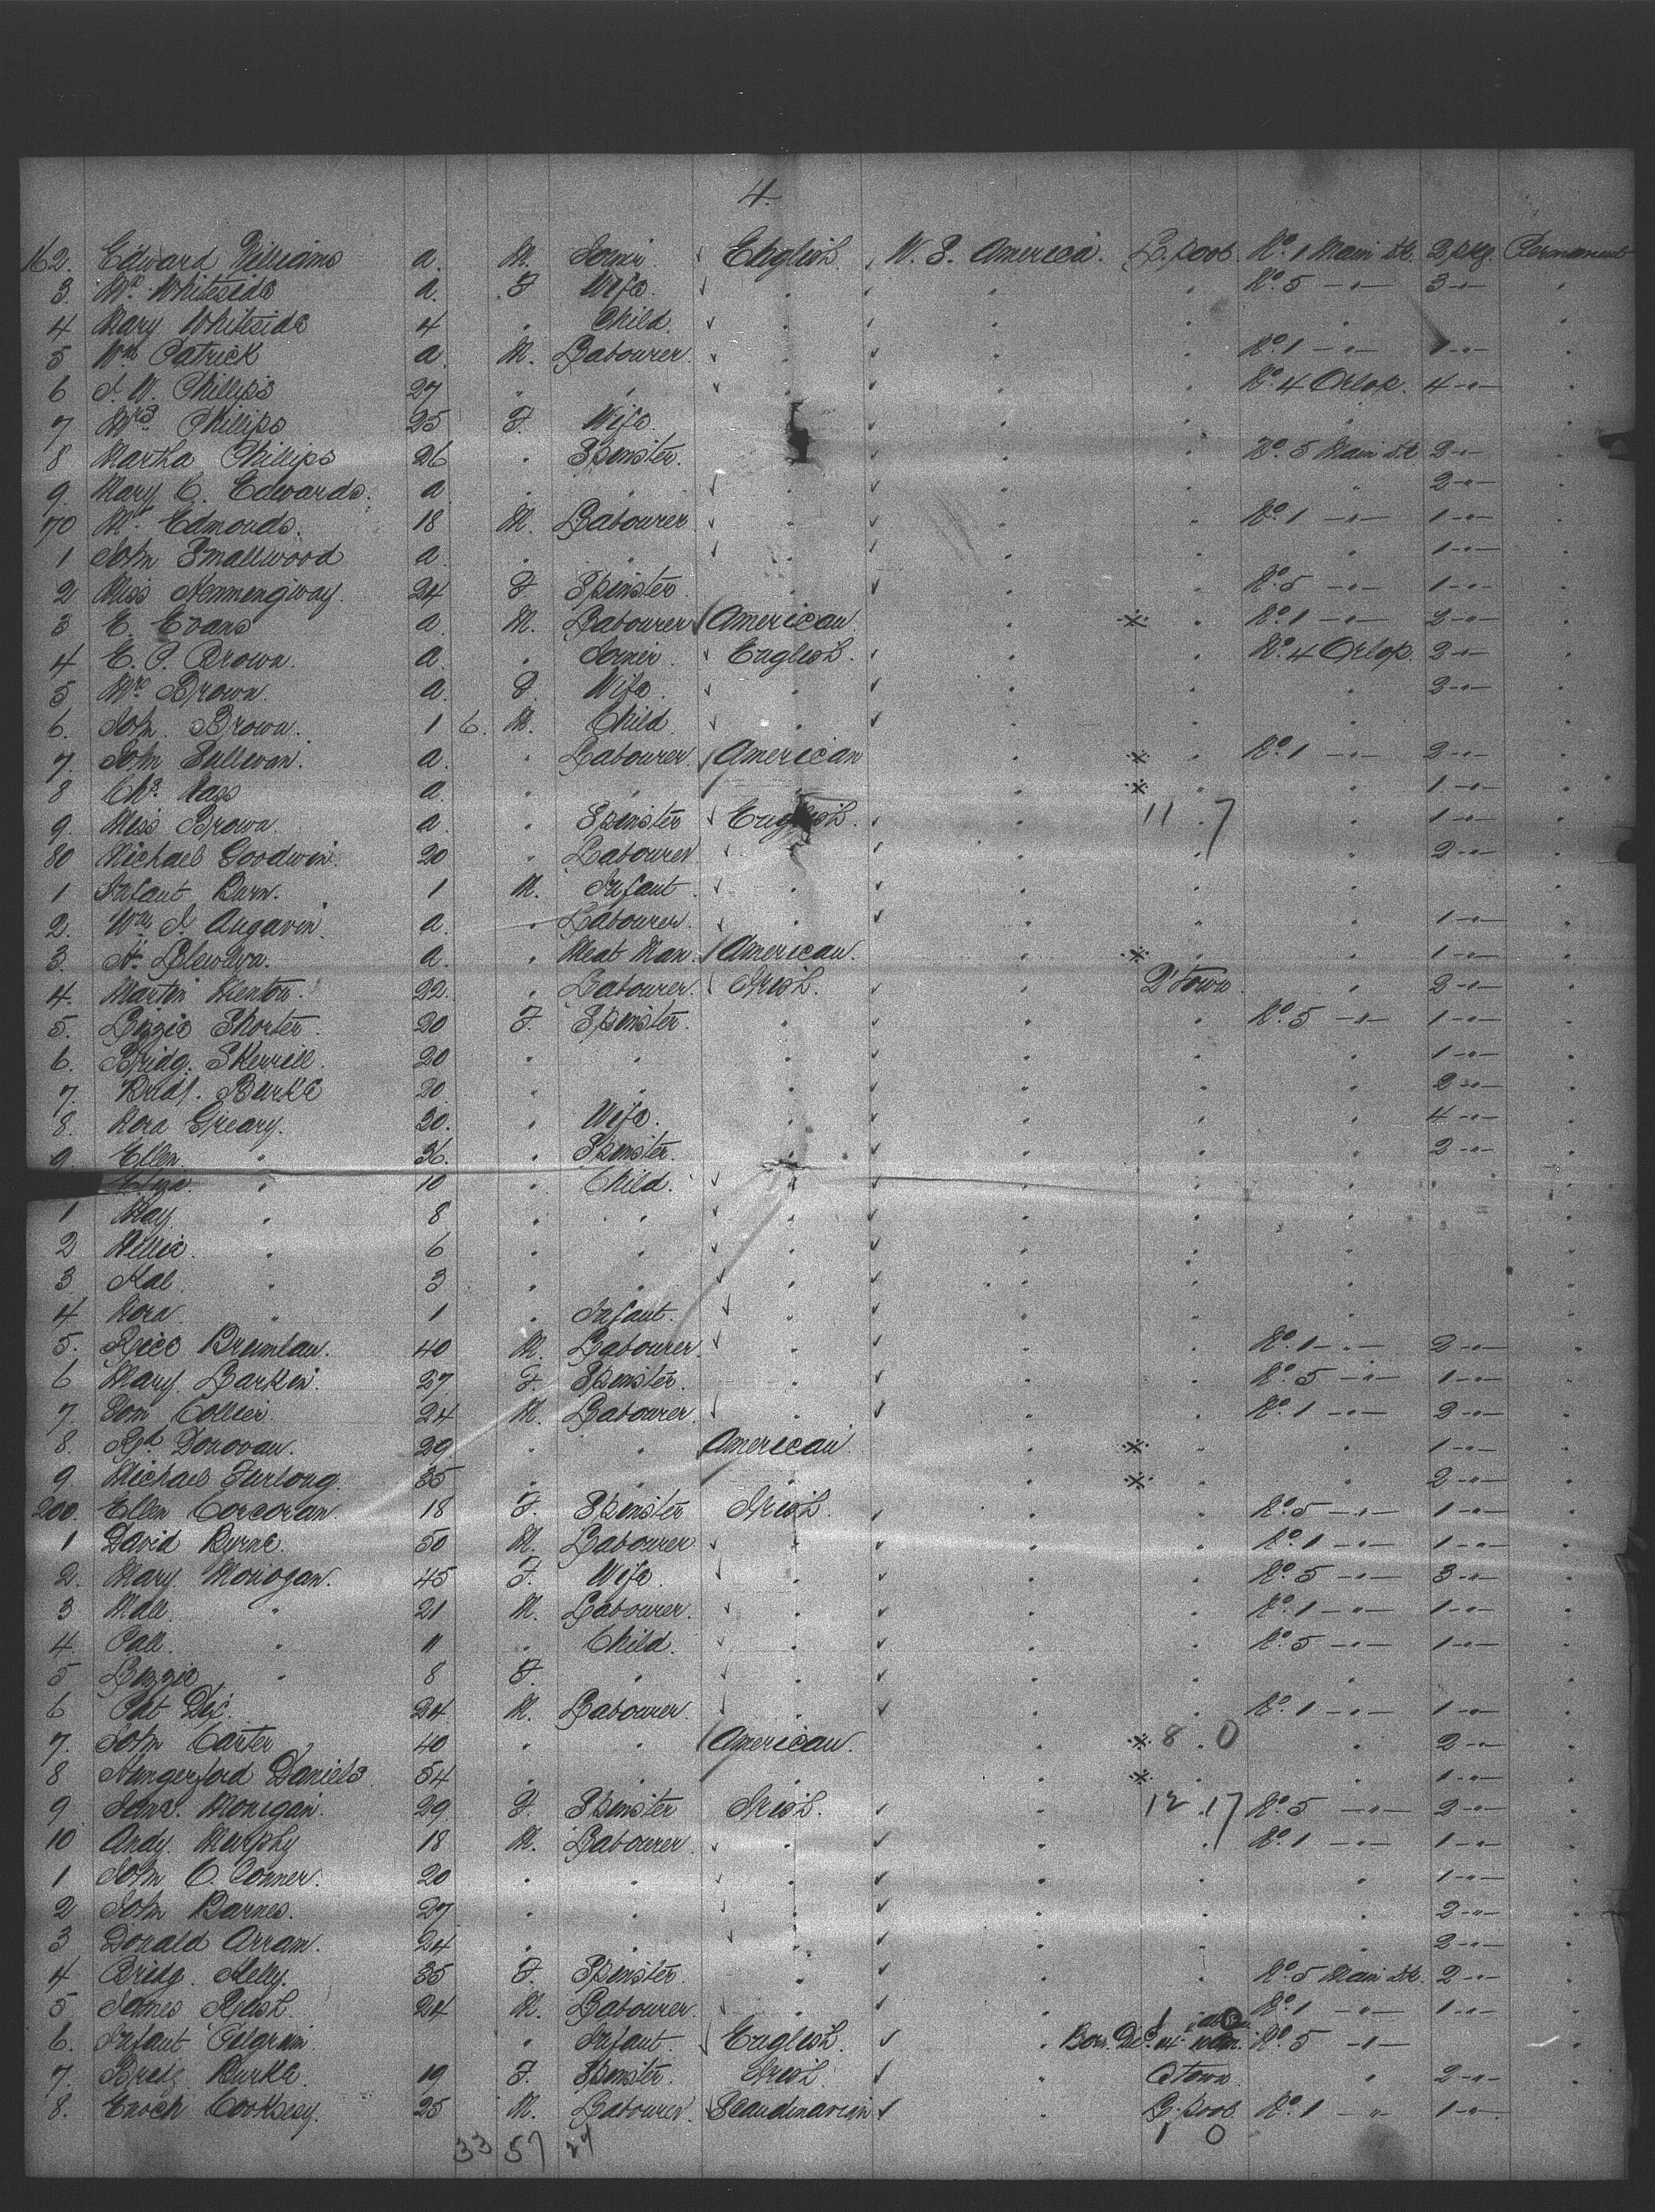 4.
162. Edward Williams a. M. Joiner English. U. S. America. L.pool. No. 1 Main Dk. 2 pkg Permanent
3. Mrs Whiteside a. F Wife. " " " No. 5 -"- 3 -"- "
4 Mary Whiteside 4 " Child. " " " " "
5 Wm Patrick a. M. Labourer. " " " No. 1 -"- 1 -"- "
6 J. W. Phillips 27 " " " " " No. 4 Orlop. 4 -"- "
7 Mrs Phillips 25 F. Wife. " " " " "
8 Martha Phillips 26 " Spinster. " " " No. 5 Main Dk. 2 -"- "
9. Mary E. Edwards. a. " " " " " " 2 -"- "
70 Mr Edmonds. 18 M. Labourer " " " No. 1 -"- 1 -"- "
1 John Smallwood a. " " " " " " 1 -"- "
2 Miss Hemmengway. 24 F Spinster " " " No. 5 -"- 1 -"- "
3 E. Evans a. M. Labourer American " * " No. 1 -"- 2 -"- "
4 E. P. Brown. a. " Joiner. English. " " No. 4 Orlop. 2 -"- "
5 Mrs Brown. a. F. Wife. " " " " 2 -"- "
6. John Brown. 1 6. M. Child " " " " "
7. John Sullivan. a. " Labourer. American " * " No. 1 -"- 2 -"- "
8 Chs. a. " " " " * " " 1 -"- "
9. Miss Brown. a. " Spinster English. " 11 7 " 1 -"- "
80 Michael Goodwin. 20 " Labourer. " " " " 2 -"- "
1 Infant Burn. 1 M. Infant " " " " "
2. Wm J. Angavin. a. " Labourer. " " " " 1 -"- "
3. H. Llewllyn. a. " Meat Man. American. " * " " 1 -"- "
4. Martin 22. " Labourer. Irish. " Q'Town. " 2 -"- "
5. Lizzie Shorter. 20 F. Spinster. " " " No. 5 -"- 1 -"- "
6. Bridg. Skerrill. 20 " " " " " " 1 -"- "
7. Bridt. Burke 20 " " " " " " 2 -"- "
8. Nora Greary. 30. " Wife. " " " " 4 -"- "
9. Ellen " 36. " Spinster. " " " " 2 -"- "
" 10 " Child. " " " " "
1 May. " 8 " " " " " " "
2 Willie. " 6 " " " " " " "
3 " 3 " " " " " " "
4 Nora " 1 " Infant. " " " " "
5. 40 M. Labourer. " " " No. 1 -"- 2 -"- "
6 Mary Larkin. 27 F. Spinster. " " " No. 5 -"- 1 -"- "
7. Tom Collier. 24 M. Labourer. " " " No. 1 -"- 2 -"- "
8. Rd Donovan. 29 " " American " * " " 1 -"- "
9 Michael Furlong. 35 " " " " * " " 2 -"- "
200. Ellen Corcoran. 18 F. Spinster Irish. " " No. 5 -"- 1 -"- "
1 David Byrne. 50 M. Labourer " " " No. 1 -"- 1 -"- "
2. Mary Monogan. 45 F. Wife. " " " No. 5 -"- 3 -"- "
3 " 21 M. Labourer. " " " No. 1 -"- 1 -"- "
4. " 11 " Child. " " " No. 5 -"- 1 -"- "
5 Lizzie " 8 F. " " " " " "
6 Pat 24 M. Labourer. " " " No. 1 -"- 1 -"- "
7. John Carter 40 " " American. " * 8 0 " 2 -"- "
8 Hungerford Daniels. 54 " " " " * " 1 -"- "
9 Monigan. 29 F. Spinster Irish. " 12 17 No. 5 -"- 2 -"- "
10 Andy. Murphy 18 M. Labourer. " " " No. 1 -"- 1 -"- "
1 John O. Conner. 20 " " " " " " 1 -"- "
2 John Barnes. 27 " " " " " " 2 -"- "
3 Donald Arram. 24 " " " " " " 2 -"- "
4 Bridg. Kelly. 35 F. Spinster. " " " No. 5 Main Dk. 2 -"- "
5 James 24 M. Labourer. " " " No. 1 -"- 1 -"- "
6. Infant Pilgrim. " Infant. English. " Born No. 5 -"-
7. Bridg Burke. 19 F. Spinster. Irish. " Q'town. " 2 -"- "
8. Enoch Cooksey. 25 M. Labourer. Scandinavian " L.pool. No. 1 -"- 1 -"- "
33 57 24 1 0